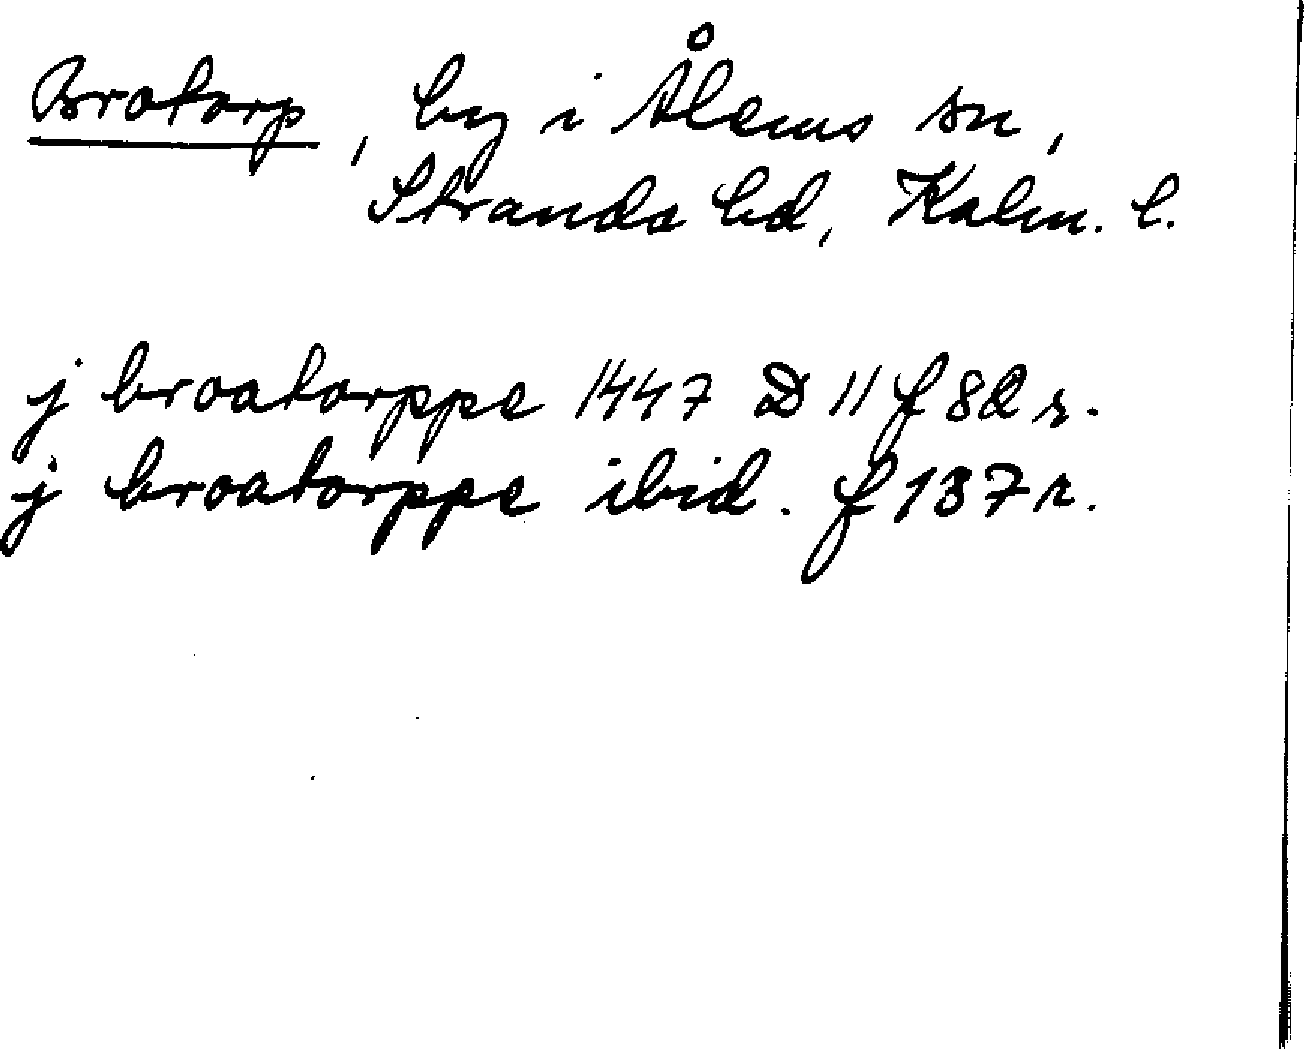 Brotorp, by i Ålems sn,
Stranda hd, Kalm. l.
j broatorppe 1447 D 11 f 82 r.
j broatorppe ibid. f 137 r.